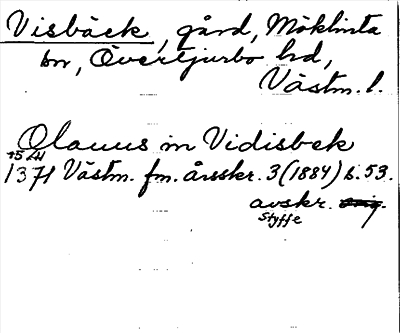 Visbäck, gård, Möklinta
sn, Övertjurbo hd,
Västm. l.
Olauus in Vidisbek
15/4
1371 Västm. fm. årsskr. 3 (1884) s. 53.
avskr. orig.
Styffe